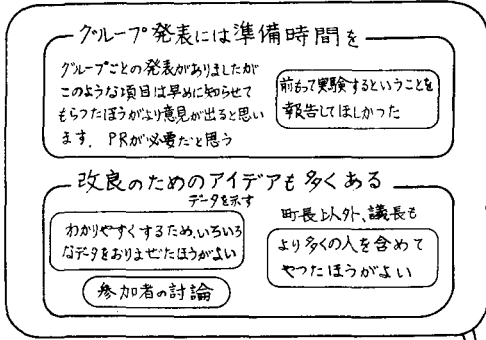 グループ発表には準備時間を
グループごとの発表がありましたが
このような項目は早めに知らせて
もらったほうがより意見が出ると思い
ます。PRが必要だと思う
前もって実験するということを
報告してほしかった
改良のためのアイデアも多くある
データを示す
わかりやすくするため、いろいろ
なデータをおりまぜたほうがよい
参加者の討論
町長以外、議長も
より多くの人を含めて
やったほうがよい